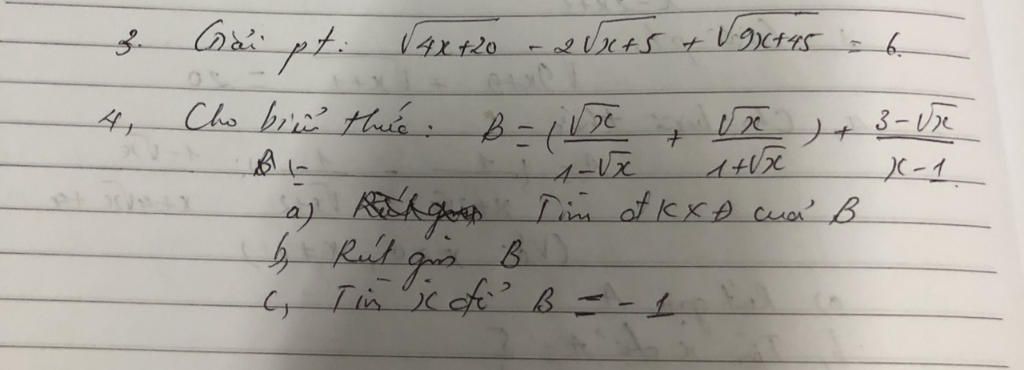 3. Giải pt: √4x+20 - 2√x+5 + √9x+45 = 6.
4, Cho biểu thức: B = (√x/1-√x + √x/1+√x) + 3-√x/x-1
B =
a) Rút gọn Tìm đKXĐ của B
b, Rút gọn B
c, Tìm x để B = -1